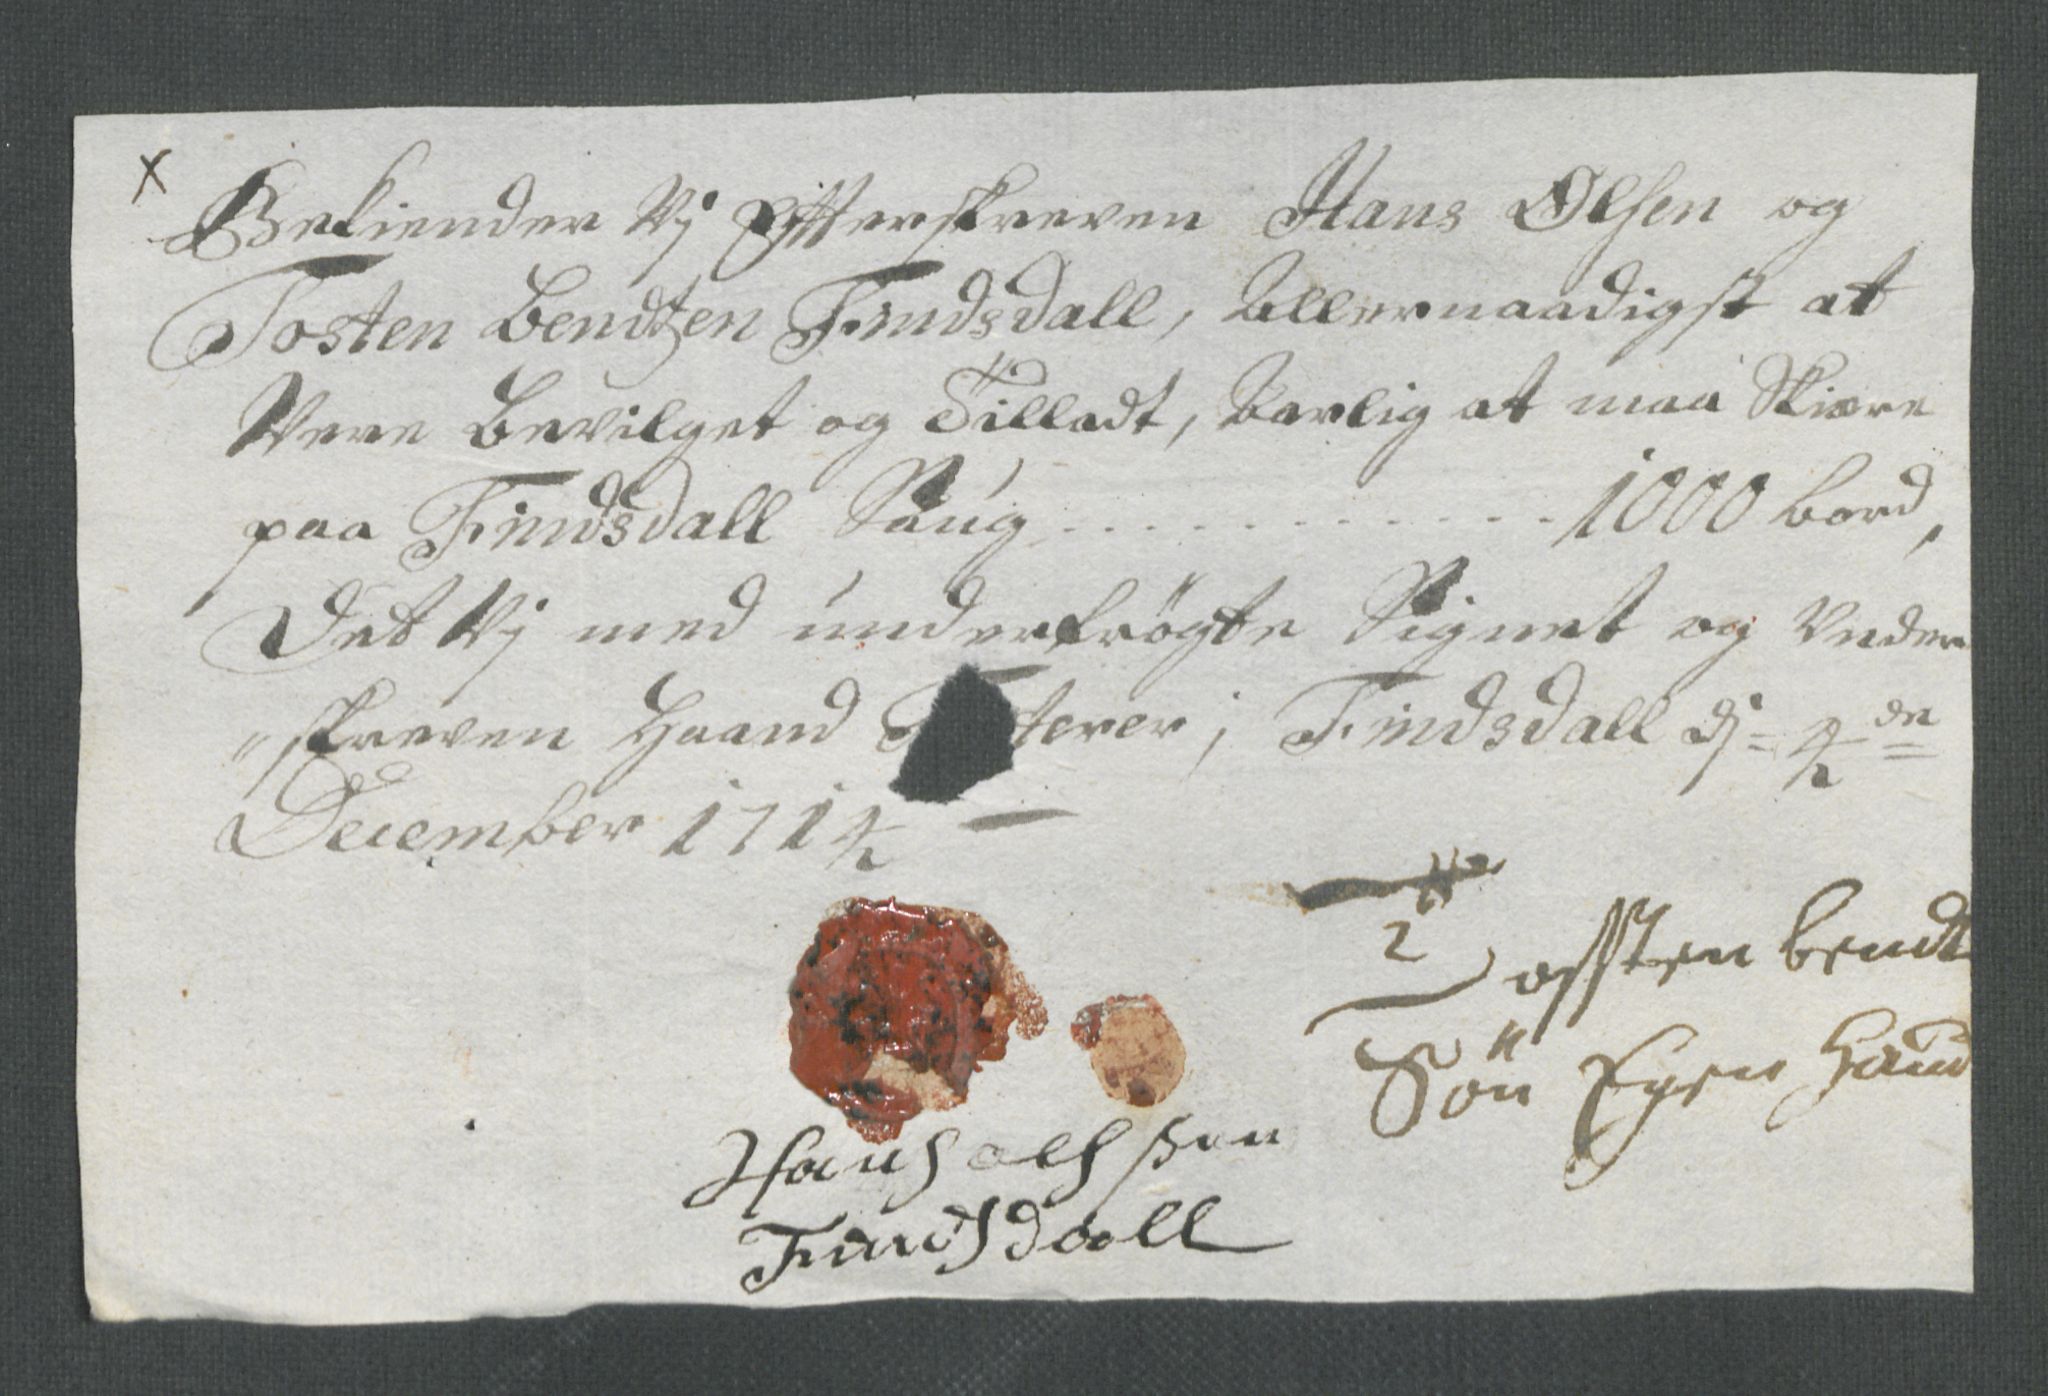 x
Bekiender Vj Efftterskreven Hans Olsen og
Tosten Bendtzen Findsdall, Allernaadigst at
Vere Bevilget og Tilladt, Aarlig at maa Skiære
paa Findsdall Saug - - - - - - - - - - - 1000 bord,
Det Vj med undertrögte Signet og Under
"skreven Haand terer, Findsdall dj = 4 de =
December 1714 —
Tossten bendt
Sön Egen Haand
Hans olsssen
Findsdall